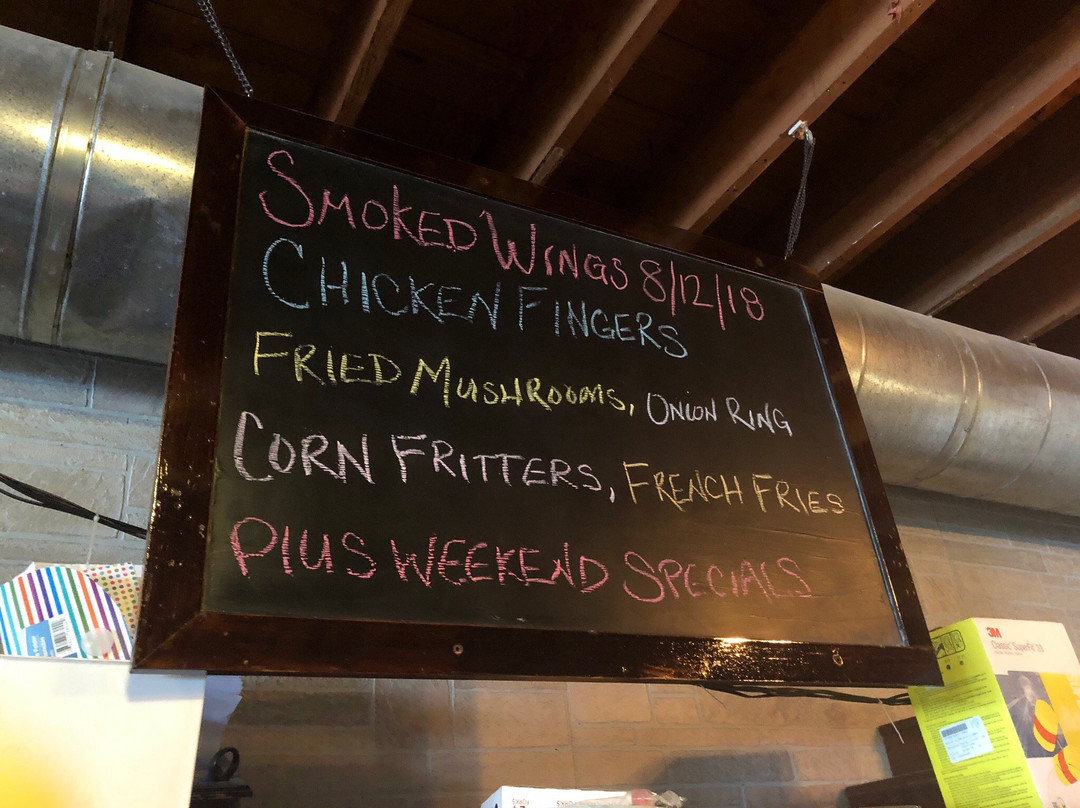 SMOKED WINGS 8/12/18
CHICKEN FINGERS
FRIED MUSHROOMS, ONION RING
CORN FRITTERS, FRENCH FRIES
PlUS WEEKEND SPECIALS
3M
Classic Superfit 33
FORKS